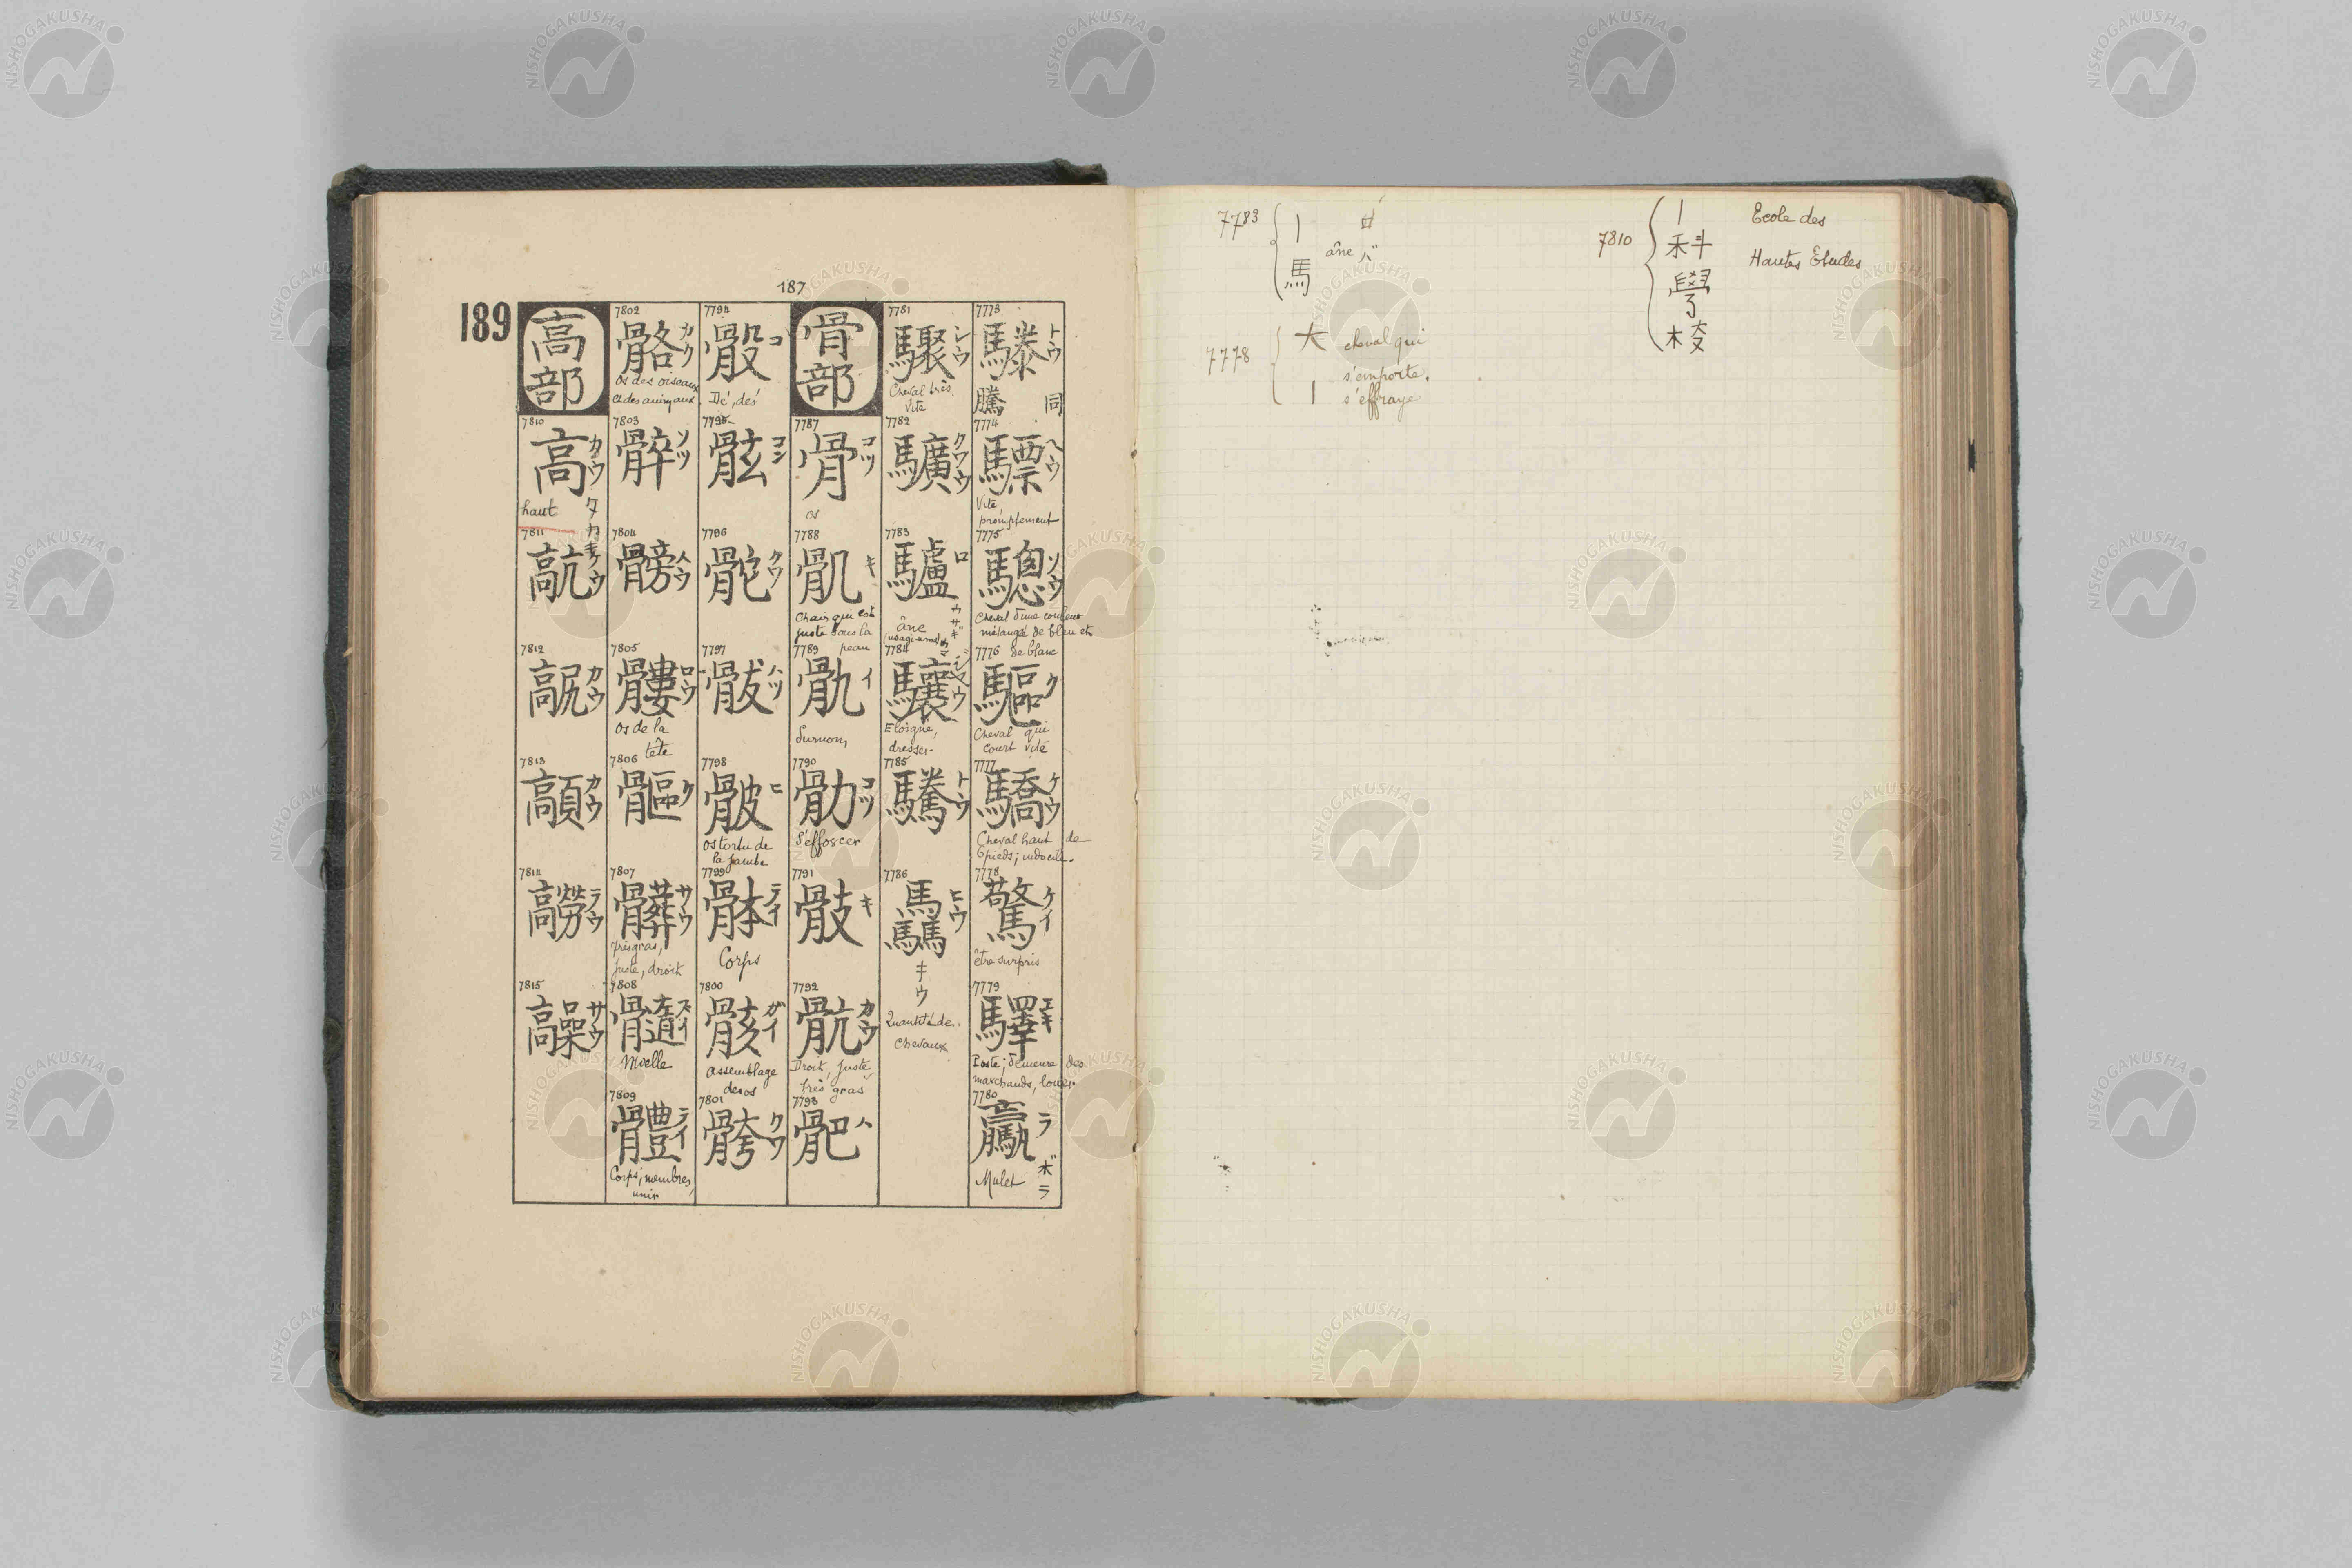 187
189
7773
驣 トウ
騰 同
7774
驃 ヘウ
Vite,
promptement
7775
驄 ソウ
Cheval d'une couleur
mélangé de bleu et
de blanc
7776
驅 ク
Cheval qui
court vite
7777
驕 ケウ
Cheval haut de
6 pieds; indocile.
7778
驚 ケイ
être surpris
7779
驛 エキ
Poste; demeure des
marchands, louer
7780
驘 ラ
Mulet
ボラ
7781
驟 シウ
Cheval très
vite
7782
驥 クワウ
7783
驢 ロ
âne
(usagi-uma)
ウサギウマ
7784
驤 シヤウ
Eloigne,
dresser
7785
驣 トウ
7786
驫 ヒウ
キウ
Quantité de
chevaux
骨部
7787
骨 コツ
os
7788
骩 キ
Chair qui est
juste sous la
peau
7789
骫 イ
Surnom,
7790
骪 コツ
S'efforcer
7791
骳 キ
7792
骯 カウ
Droit, juste
très gras
7793
骲 ハ
7794
骰 コ
Dé, dés
7795
骸 コン
7796
骻 クワ
7797
骸 ハツ
7798
骳 ヒ
os tortu de
la jambe
7799
骵 テイ
Corps
7800
骸 ガイ
assemblage
de os
7801
骻 クワ
7802
骼 カク
Os des oiseaux
et des animaux
7803
髊 ソツ
7804
髈 ハウ
7805
髏 ロウ
Os de la
tête
7806
髸 ク
7807
髒 サウ
Très gras,
juste, droit
7808
髓 ズイ
Moelle
7809
體 テイ
Corps; membres,
unir
高部
7810
高 カウ
タカキ
haut
7811
髚 カウ
7812
髛 カウ
7813
髜 カウ
7814
髝 ラウ
7815
髞 サウ
7783
丨馬
âne
ロ
バ
7778
大丨
cheval qui
s'emporte.
s'effraye
7810
丨科學校
Ecole des
Hautes Études